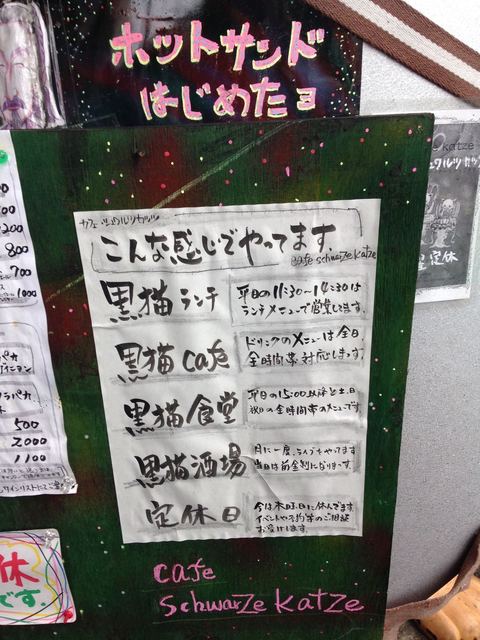 ホットサンド
はじめたヨ
カフェ シュヴァルツカッツェ
こんな感じでやってます。
cafe schwarze katze
黒猫 ランチ
平日の11:30〜14:30は
ランチメニューで営業してます。
黒猫 cafe
ドリンクのメニューは全日
全時間帯対応しまっす。
黒猫食堂
平日の15:00以降と土、日
祝の全時間帯のメニューです。
黒猫酒場
月に一度、ライブもやってます
当日は前金制になりまっす。
定休日
今は木曜日に休んでます。
イベントや
のご相談
お受けします。
cafe
schwarze katze
休
です。
katze
定休
200
800
700
1000
500
2000
1100